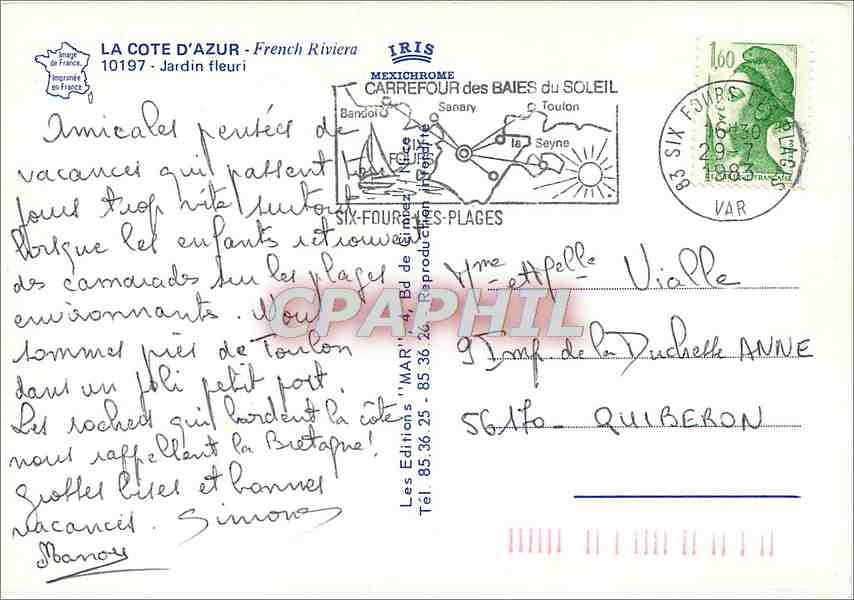 Image
de France.
Imprimée
en France
LA COTE D'AZUR - French Riviera
10197 - Jardin fleuri
IRIS
MEXICHROME
CARREFOUR des BAIES du SOLEIL
Bandol
Sanary
Toulon
SIX
FOURS
la Seyne
SIX-FOURS-LES-PLAGES
1,60
83 SIX FOURS LES PLAGES
16H30
29-7
1983
VAR
Amicales pensées de
vacances qui passent
jours trop vite surtout
lorsque les enfants retrouvent
des camarades sur les plages
environnants. Nous
sommes près de Toulon
dans un joli petit port.
Les rochers qui bordent la côte
nous rappellent la Bretagne!
Grosses bises et bonnes
vacances. Simone
Les Editions "MAR", 4, Bd de Cimiez, Nice
Tél. 85.36.25 - 85.36.26 Reproduction interdite
Mme et Melle Vialle
9 Imp. de la Duchesse ANNE
56170 - QUIBERON
CPAPHIL